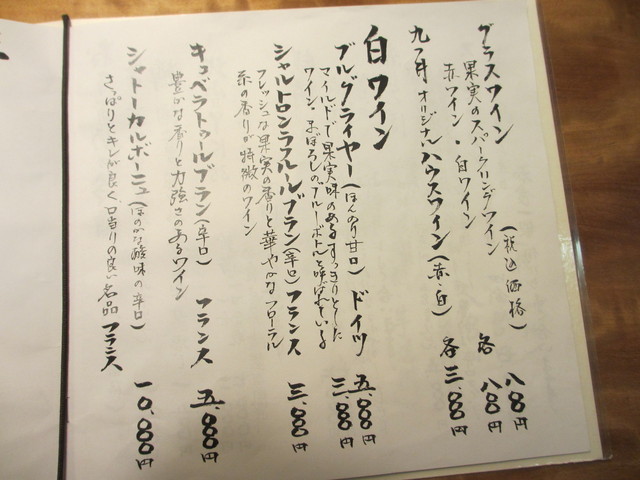 グラスワイン (税込価格)
果実のスパークリングワイン 八八〇円
赤ワイン・白ワイン 各 八八〇円
九つ井オリジナルハウスワイン(赤・白) 各 三、八〇〇円
白ワイン
ブルグライヤー(ほんのり甘口) ドイツ 五、八〇〇円
マイルドで果実味のあるすっきりとした 三、八〇〇円
ワイン・まぼろしのブルーボトルと呼ばれている
シャルトロンラフルールブラン(辛口) フランス 三、八〇〇円
フレッシュな果実の香りと華やかなフローラル
系の香りが特徴のワイン
キュベラトゥールブラン(辛口) フランス 五、八〇〇円
豊かな香りと力強さのあるワイン
シャトーカルボーニュ(ほのかな酸味の辛口)
さっぱりとキレが良く、口当りの良い名品 フランス 一〇、〇〇〇円